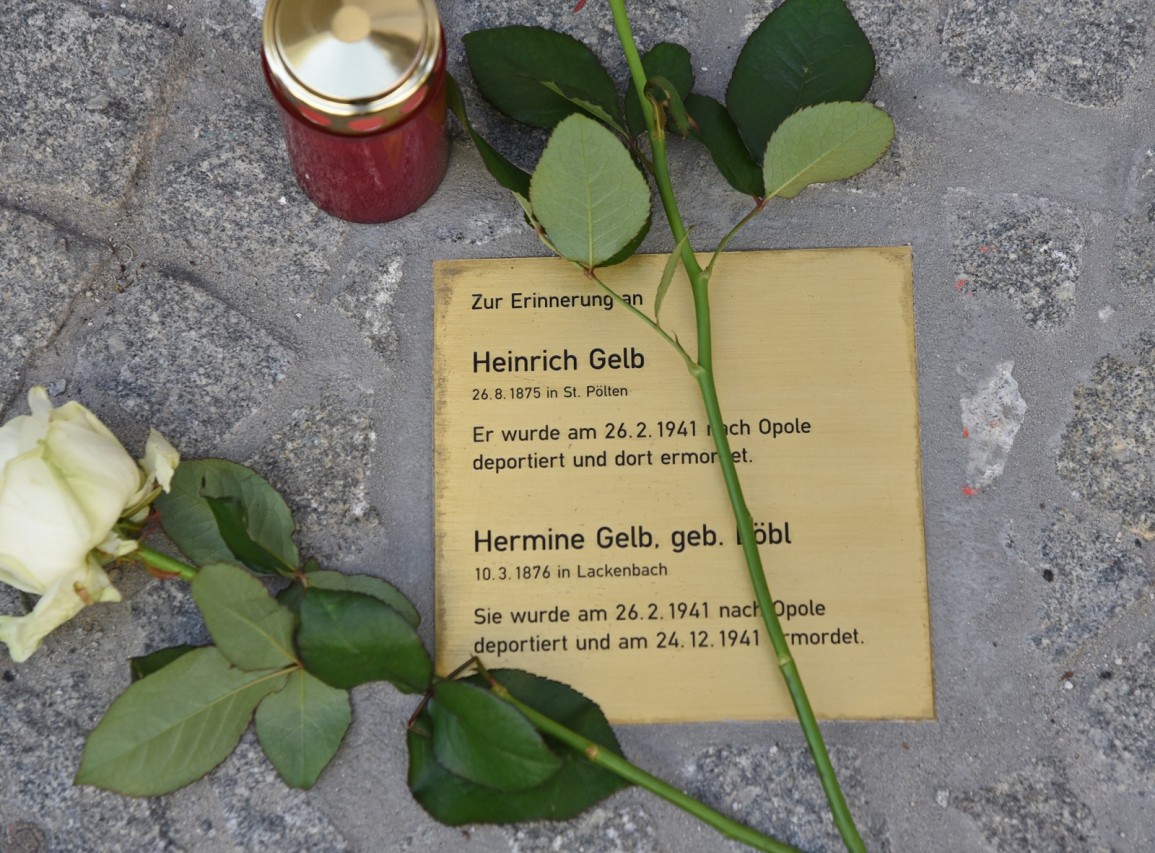 Zur Erinnerung an
Heinrich Gelb
26.8.1875 in St. Pölten
Er wurde am 26.2.1941 nach Opole
deportiert und dort ermordet.
Hermine Gelb, geb. Löbl
10.3.1876 in Lackenbach
Sie wurde am 26.2.1941 nach Opole
deportiert und am 24.12.1941 ermordet.